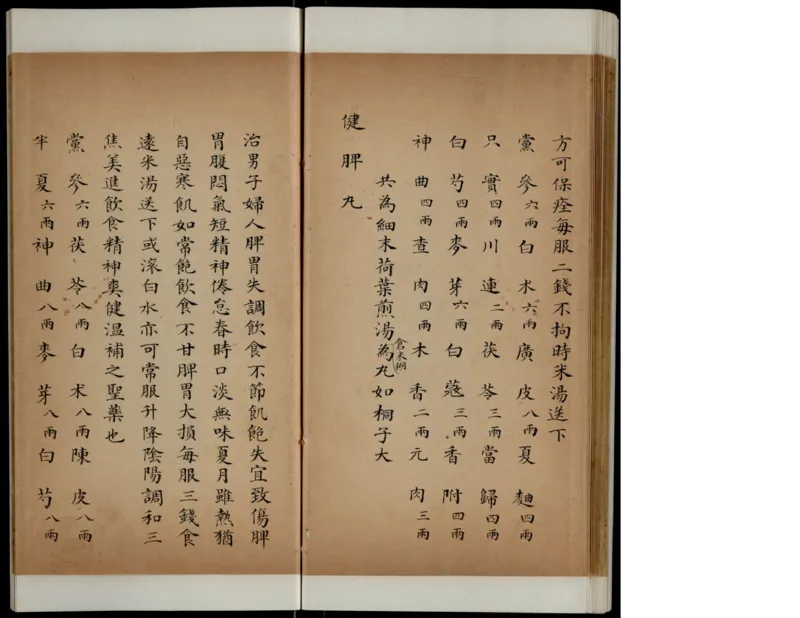 方可保痊每服二錢不拘時米湯送下
黨參六兩白朮六兩廣皮八兩夏麯四兩
只實四兩川連二兩茯苓三兩當歸四兩
白芍四兩麥芽六兩白蔻三兩香附四兩
神曲四兩查肉四兩木香二兩元肉三兩
共為細末荷葉煎湯倉米糊為丸如桐子大
健脾丸
治男子婦人脾胃失調飲食不節飢飽失宜致傷脾
胃腹悶氣短精神倦怠春時口淡無味夏月雖熱猶
自惡寒飢如常飽飲食不甘脾胃大損每服三錢食
遠米湯送下或滚白水亦可常服升降陰陽調和三
焦美進飲食精神爽健温補之聖藥也
黨參六兩茯苓八兩白朮八兩陳皮八兩
半夏六兩神曲八兩麥芽八兩白芍八兩